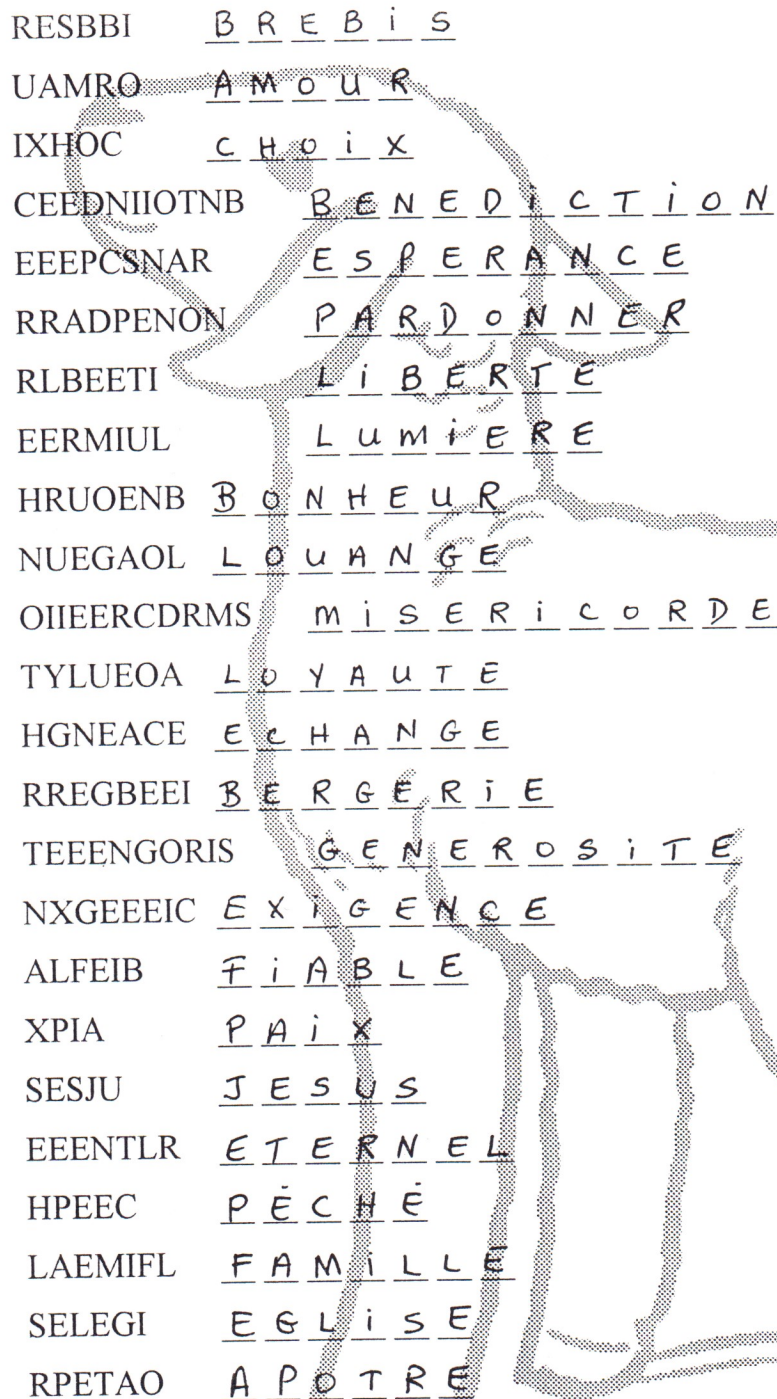 RESBBI BREBiS
UAMRO AMOUR
IXHOC CHOiX
CEEDNIIOTNB BENEDiCTiON
EEEPCSNAR ESPERANCE
RRADPENON PARDONNER
RLBEETI LiBERTE
EERMIUL LUMiERE
HRUOENB BONHEUR
NUEGAOL LOUANGE
OIIEERCDRMS MiSERiCORDE
TYLUEOA LOYAUTE
HGNEACE ECHANGE
RREGBEEI BERGERiE
TEEENGORIS GENEROSiTE
NXGEEEIC EXiGENCE
ALFEIB FiABLE
XPIA PAiX
SESJU JESUS
EEENTLR ETERNEL
HPEEC PÉCHÉ
LAEMIFL FAMiLLE
SELEGI EGLiSE
RPETAO APOTRE